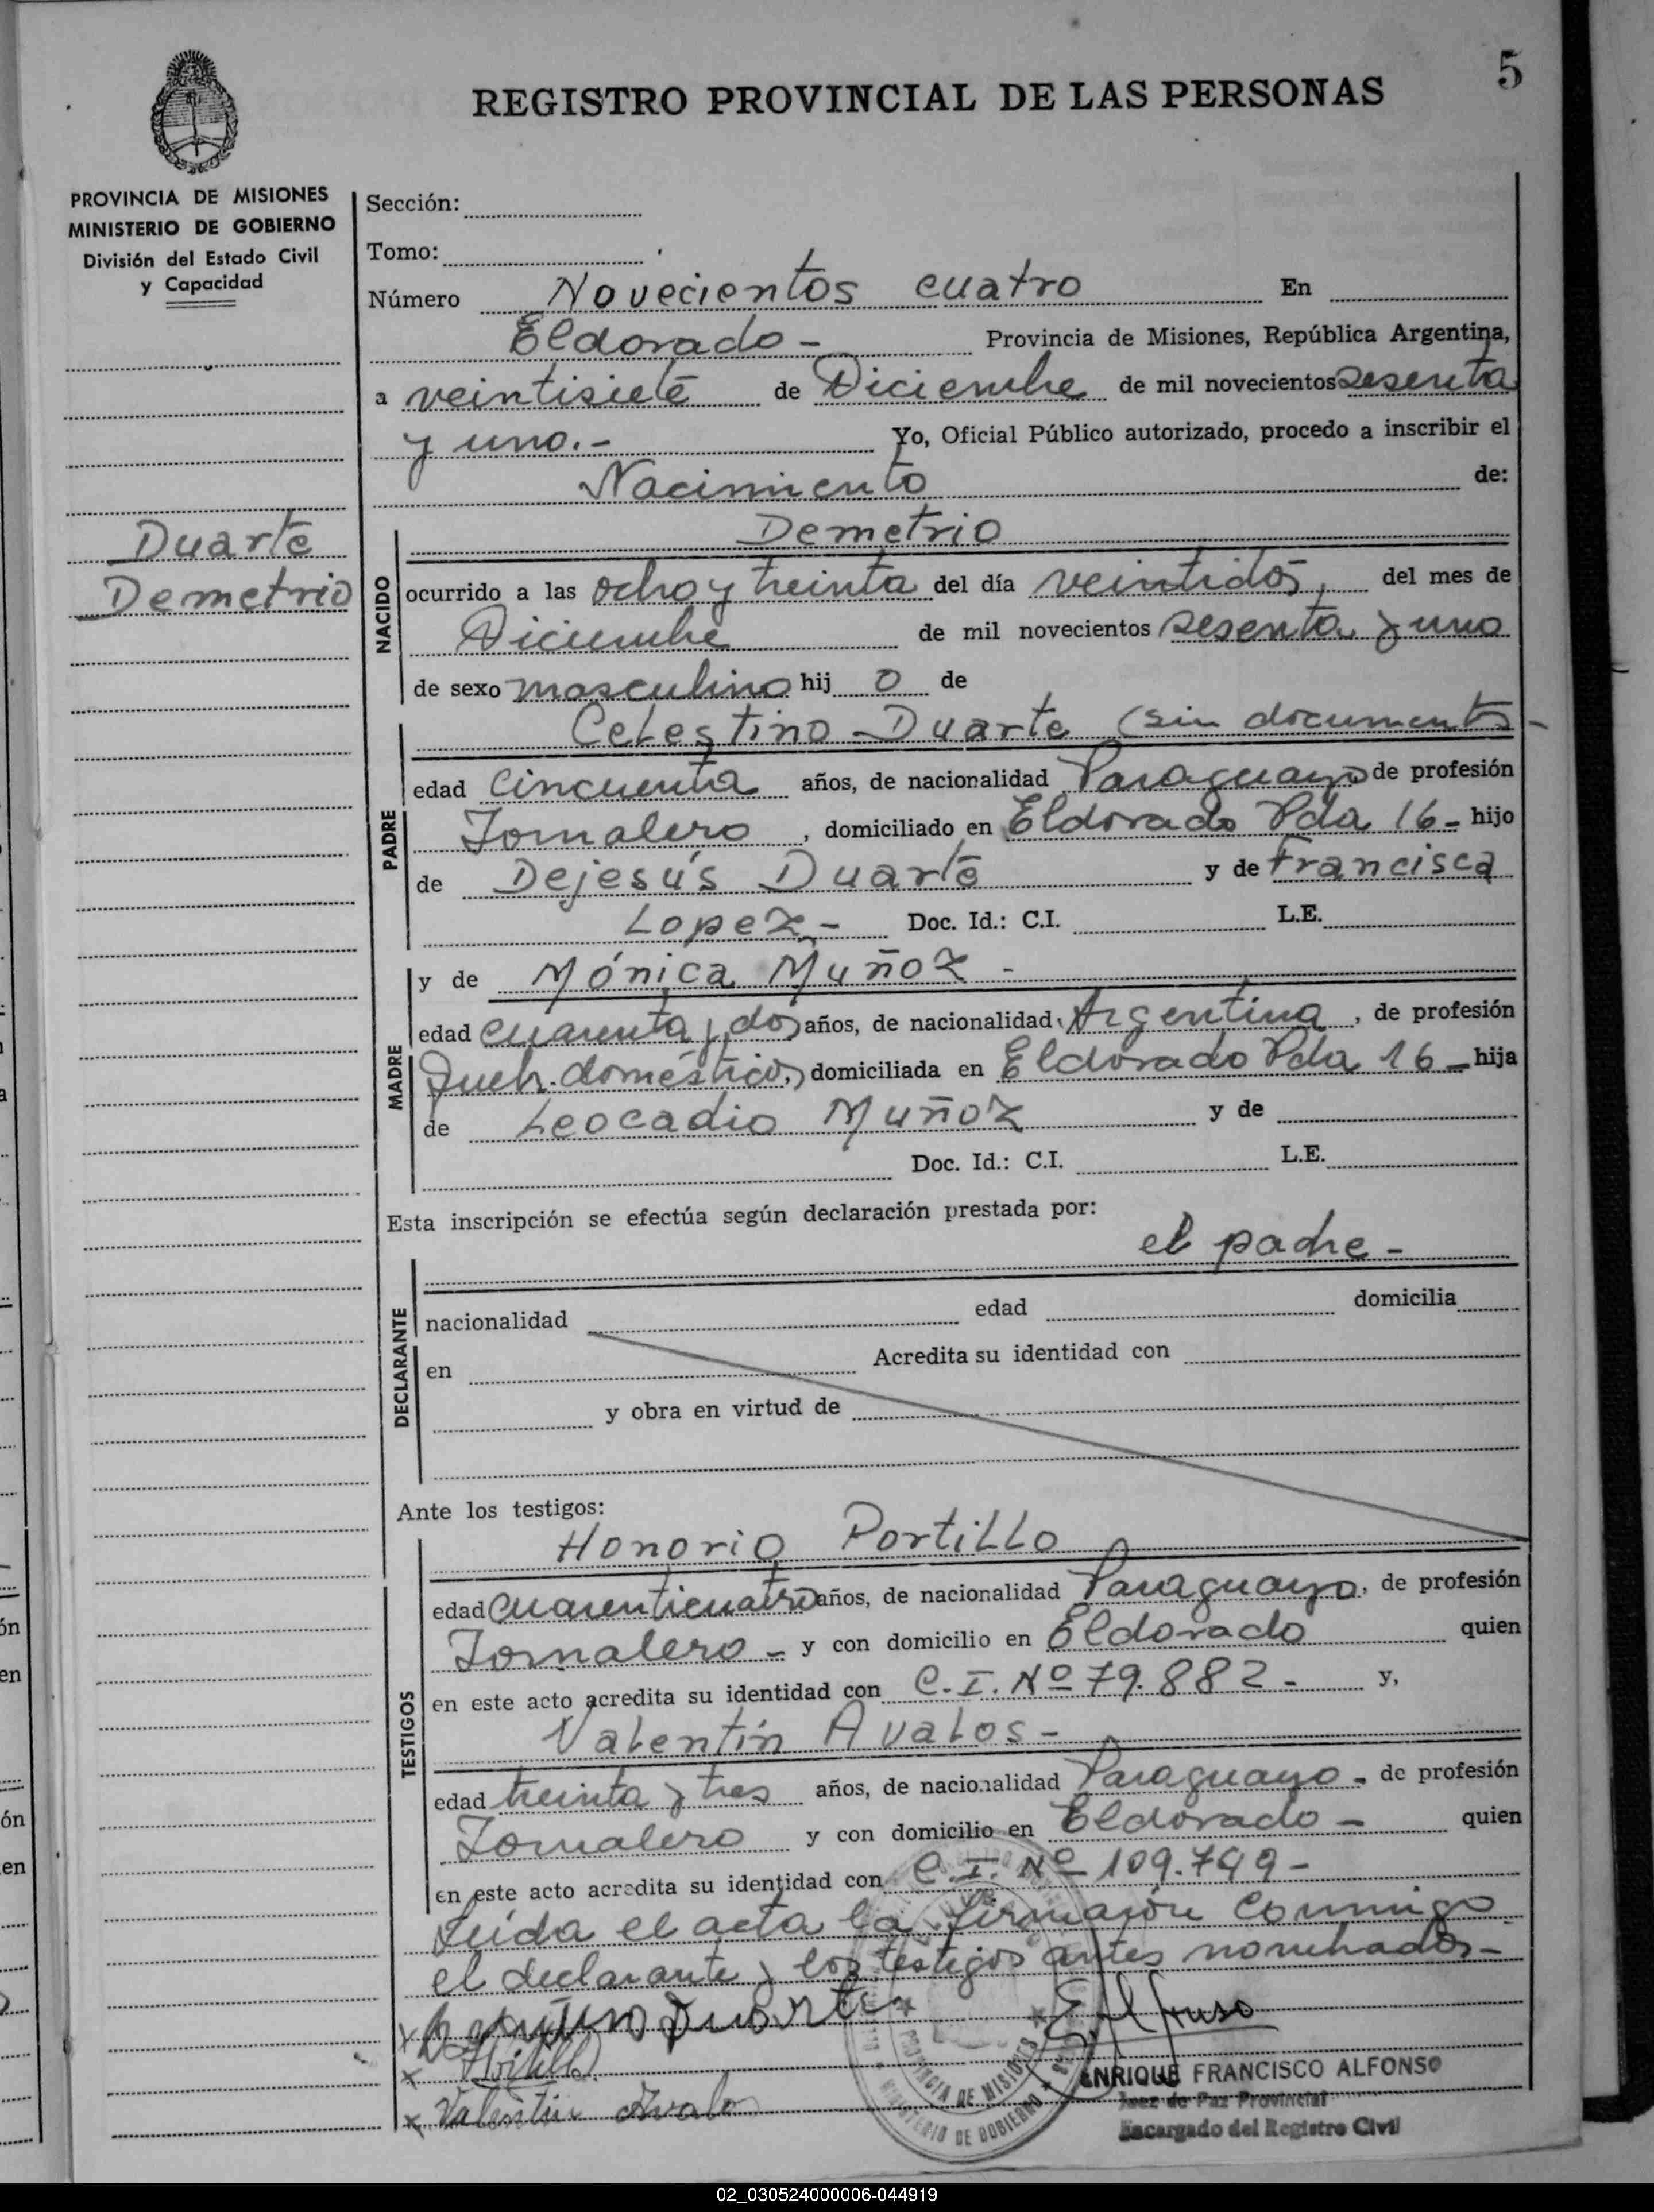 5
REGISTRO PROVINCIAL DE LAS PERSONAS
PROVINCIA DE MISIONES
MINISTERIO DE GOBIERNO
División del Estado Civil
y Capacidad
Duarte
Demetrio
Sección:
Tomo:
Número Novecientos cuatro En
Eldorado - Provincia de Misiones, República Argentina,
a veintisiete de Diciembre de mil novecientos sesenta
y uno.- Yo, Oficial Público autorizado, procedo a inscribir el
Nacimiento de:
NACIDO
Demetrio
ocurrido a las ocho y treinta del día veintidos, del mes de
Diciembre de mil novecientos sesenta y uno
de sexo masculino hij o de
PADRE
Celestino Duarte (sin documento-
edad Cincuenta años, de nacionalidad Paraguayo de profesión
Jornalero, domiciliado en Eldorado Pda 16- hijo
de Dejesús Duarte y de Francisca
Lopez.- Doc. Id.: C.I. L.E.
MADRE
y de Mónica Muñoz -
edad cuarenta y dos años, de nacionalidad Argentina, de profesión
Queh. domésticos, domiciliada en Eldorado Pda 16- hija
de Leocadio Muñoz y de
Doc. Id.: C.I. L.E.
Esta inscripción se efectúa según declaración prestada por:
el padre -
DECLARANTE
nacionalidad edad domicilia
en Acredita su identidad con
y obra en virtud de
Ante los testigos:
TESTIGOS
Honorio Portillo
edad cuarenticuatro años, de nacionalidad Paraguayo, de profesión
Jornalero - y con domicilio en Eldorado quien
en este acto acredita su identidad con C.I. Nº 79.882 - y,
Valentín Avalos -
edad treinta y tres años, de nacionalidad Paraguayo - de profesión
Jornalero y con domicilio en Eldorado - quien
en este acto acredita su identidad con C.I. Nº 109.749 -
Leída el acta la firmaron conmigo
el declarante y los testigos antes nombrados -
Duarte
Valentin Avalos
ENRIQUE FRANCISCO ALFONSO
Juez de Paz Provincial
Encargado del Registro Civil
PROVINCIA DE MISIONES
MINISTERIO DE GOBIERNO
02_030524000006-044919